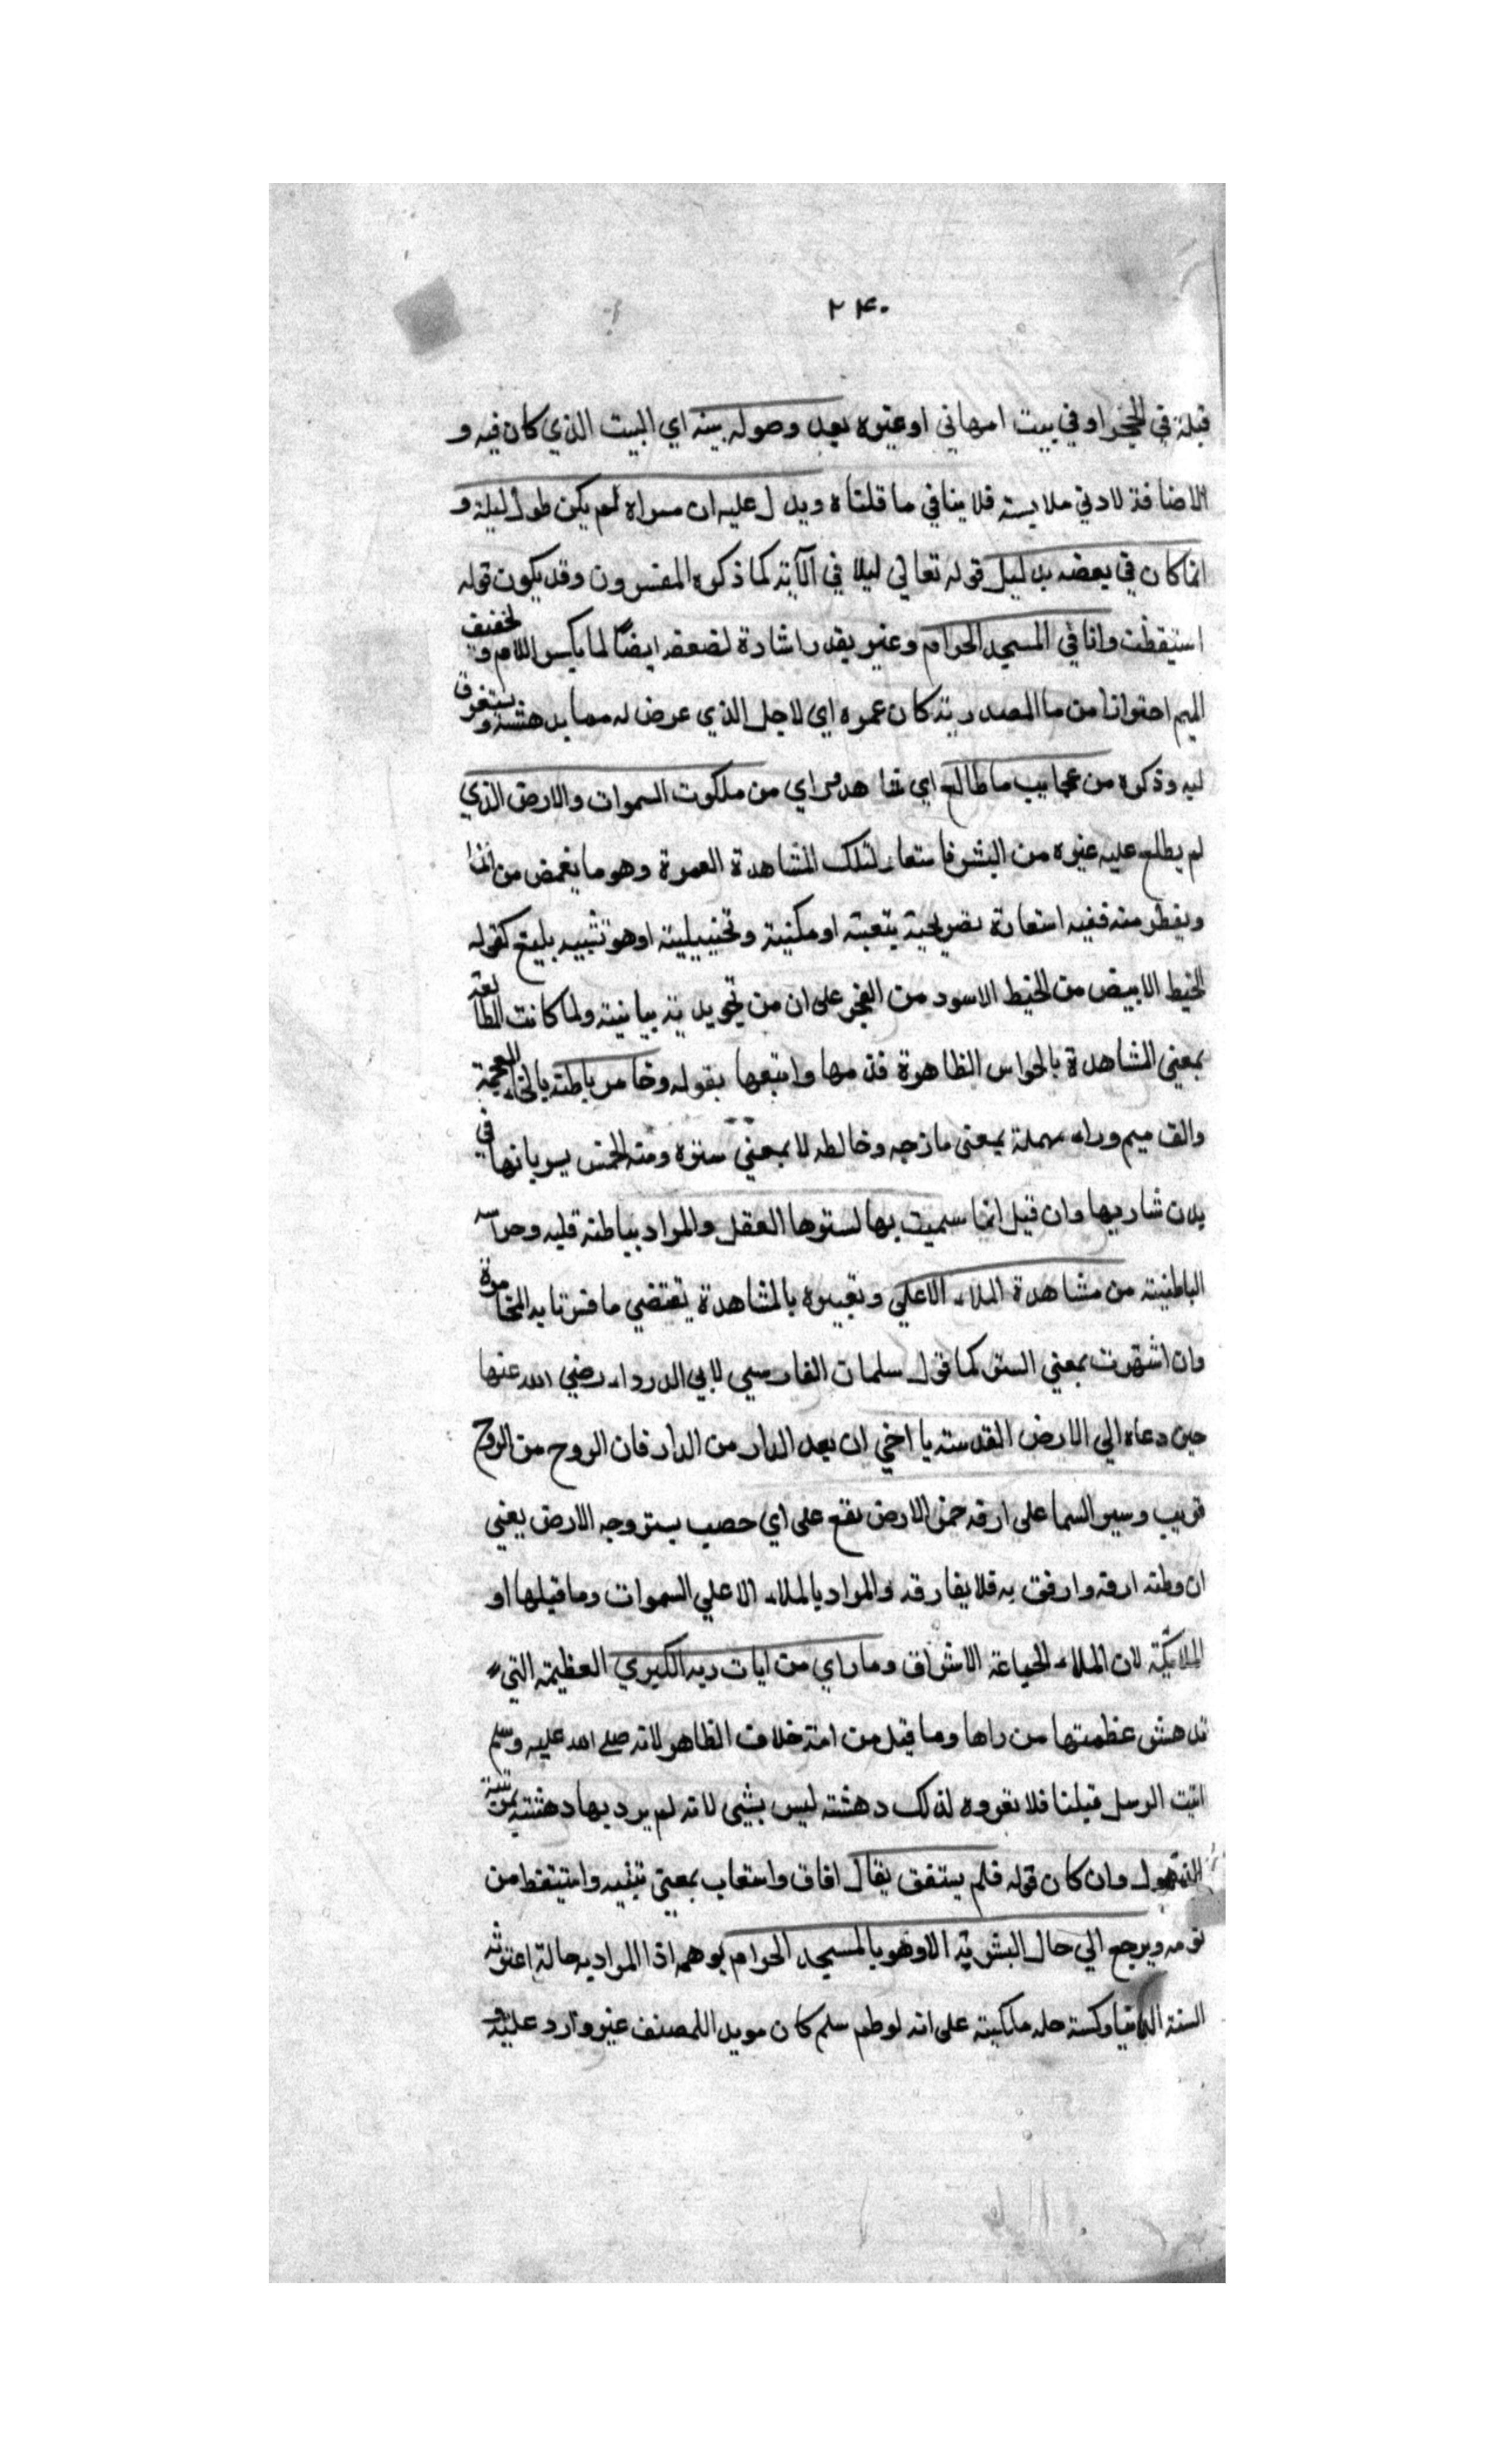 ٢٤٠
قبله في الحجر او في بيت امهاني او غيره بعد وصوله بيته اي البيت الذي كان فيه و
الاضافة لادني ملابسة فلا ينافي ما قلناه ويدل عليه ان مسراه لم يكن طول ليلة و
انما كان في بعضه بدليل قوله تعالي ليلا في الآية كما ذكره المفسرون وقد يكون قوله
استيقظت وانا في المسجد الحرام وغير بقد اشارة لضعفه ايضًا لما بكسر اللام و تخفيف
الميم من ما المصدرية كان غمره اي لاجل الذي عرض له مما يدهشه و يستغرق
لبه وذكره من عجايب ما طالع اي شاهد وراي من ملكوت السموات والارض الذي
لم يطلع عليه غيره من البشر فاستعار لتلك المشاهدة الغمرة وهو ما يغمض من الما
ويغطر منه ففيه استعارة تصريحية تبعية او مكنية وتخييلية او هو تشبيه بليغ كقوله
الخيط الابيض من الخيط الاسود من الفجر علي ان من تجريدية بيانية ولما كانت المطالعة
بمعني المشاهدة بالحواس الظاهرة قدمها واتبعها بقوله وخامر باطنه بالخاء المعجمة
والف ميم وراء مهملة بمعني مازجه وخالطه لا بمعني ستره ومنه الخمر بسريانها في
بدن شاربها وان قيل انما سميت بها لسترها العقل والمراد بباطنه قلبه وحواسه
الباطنية من مشاهدة الملاء الاعلي وتعبيره بالمشاهدة يقتضي ما فسرنا به المخامرة
وان اشتهرت بمعني الستر كما قول سلمان الفارسي لابي الدرداء رضي الله عنها
حين دعاه الي الارض المقدسة يا اخي ان بعد الدار من الدار فان الروح من الروح
قريب وسير السما علي ارفه خمر الارض تقع علي اي خصب يستر وجه الارض يعني
ان وطنه ارفه وارفق به فلا يفارقه والمراد بالملاء الاعلي السموات وما قبلها او
الملائكة لان الملاء الجماعة الاشراف وما راي من ايات ربه الكبري العظيمة التي
تدهش عظمتها من راها وما قيل من انه خلاف الظاهر لانه صلي الله عليه وسلم
اتيت الرسل قبلنا فلا تعروه لذلك دهشة ليس بشي لانه لم يرد بها دهشة
الذهول وان كان قوله فلم يستفق يقال افاق واستفاب بمعني تنبه واستيقظ من
نومه ويرجع الي حال البشرية الا وهو بالمسجد الحرام يوهمه اذا المراد به حالة اعترته
السنة وكسته حلة ملكية علي انه لو سلم كان مويد اللمصنف غير وارد عليه